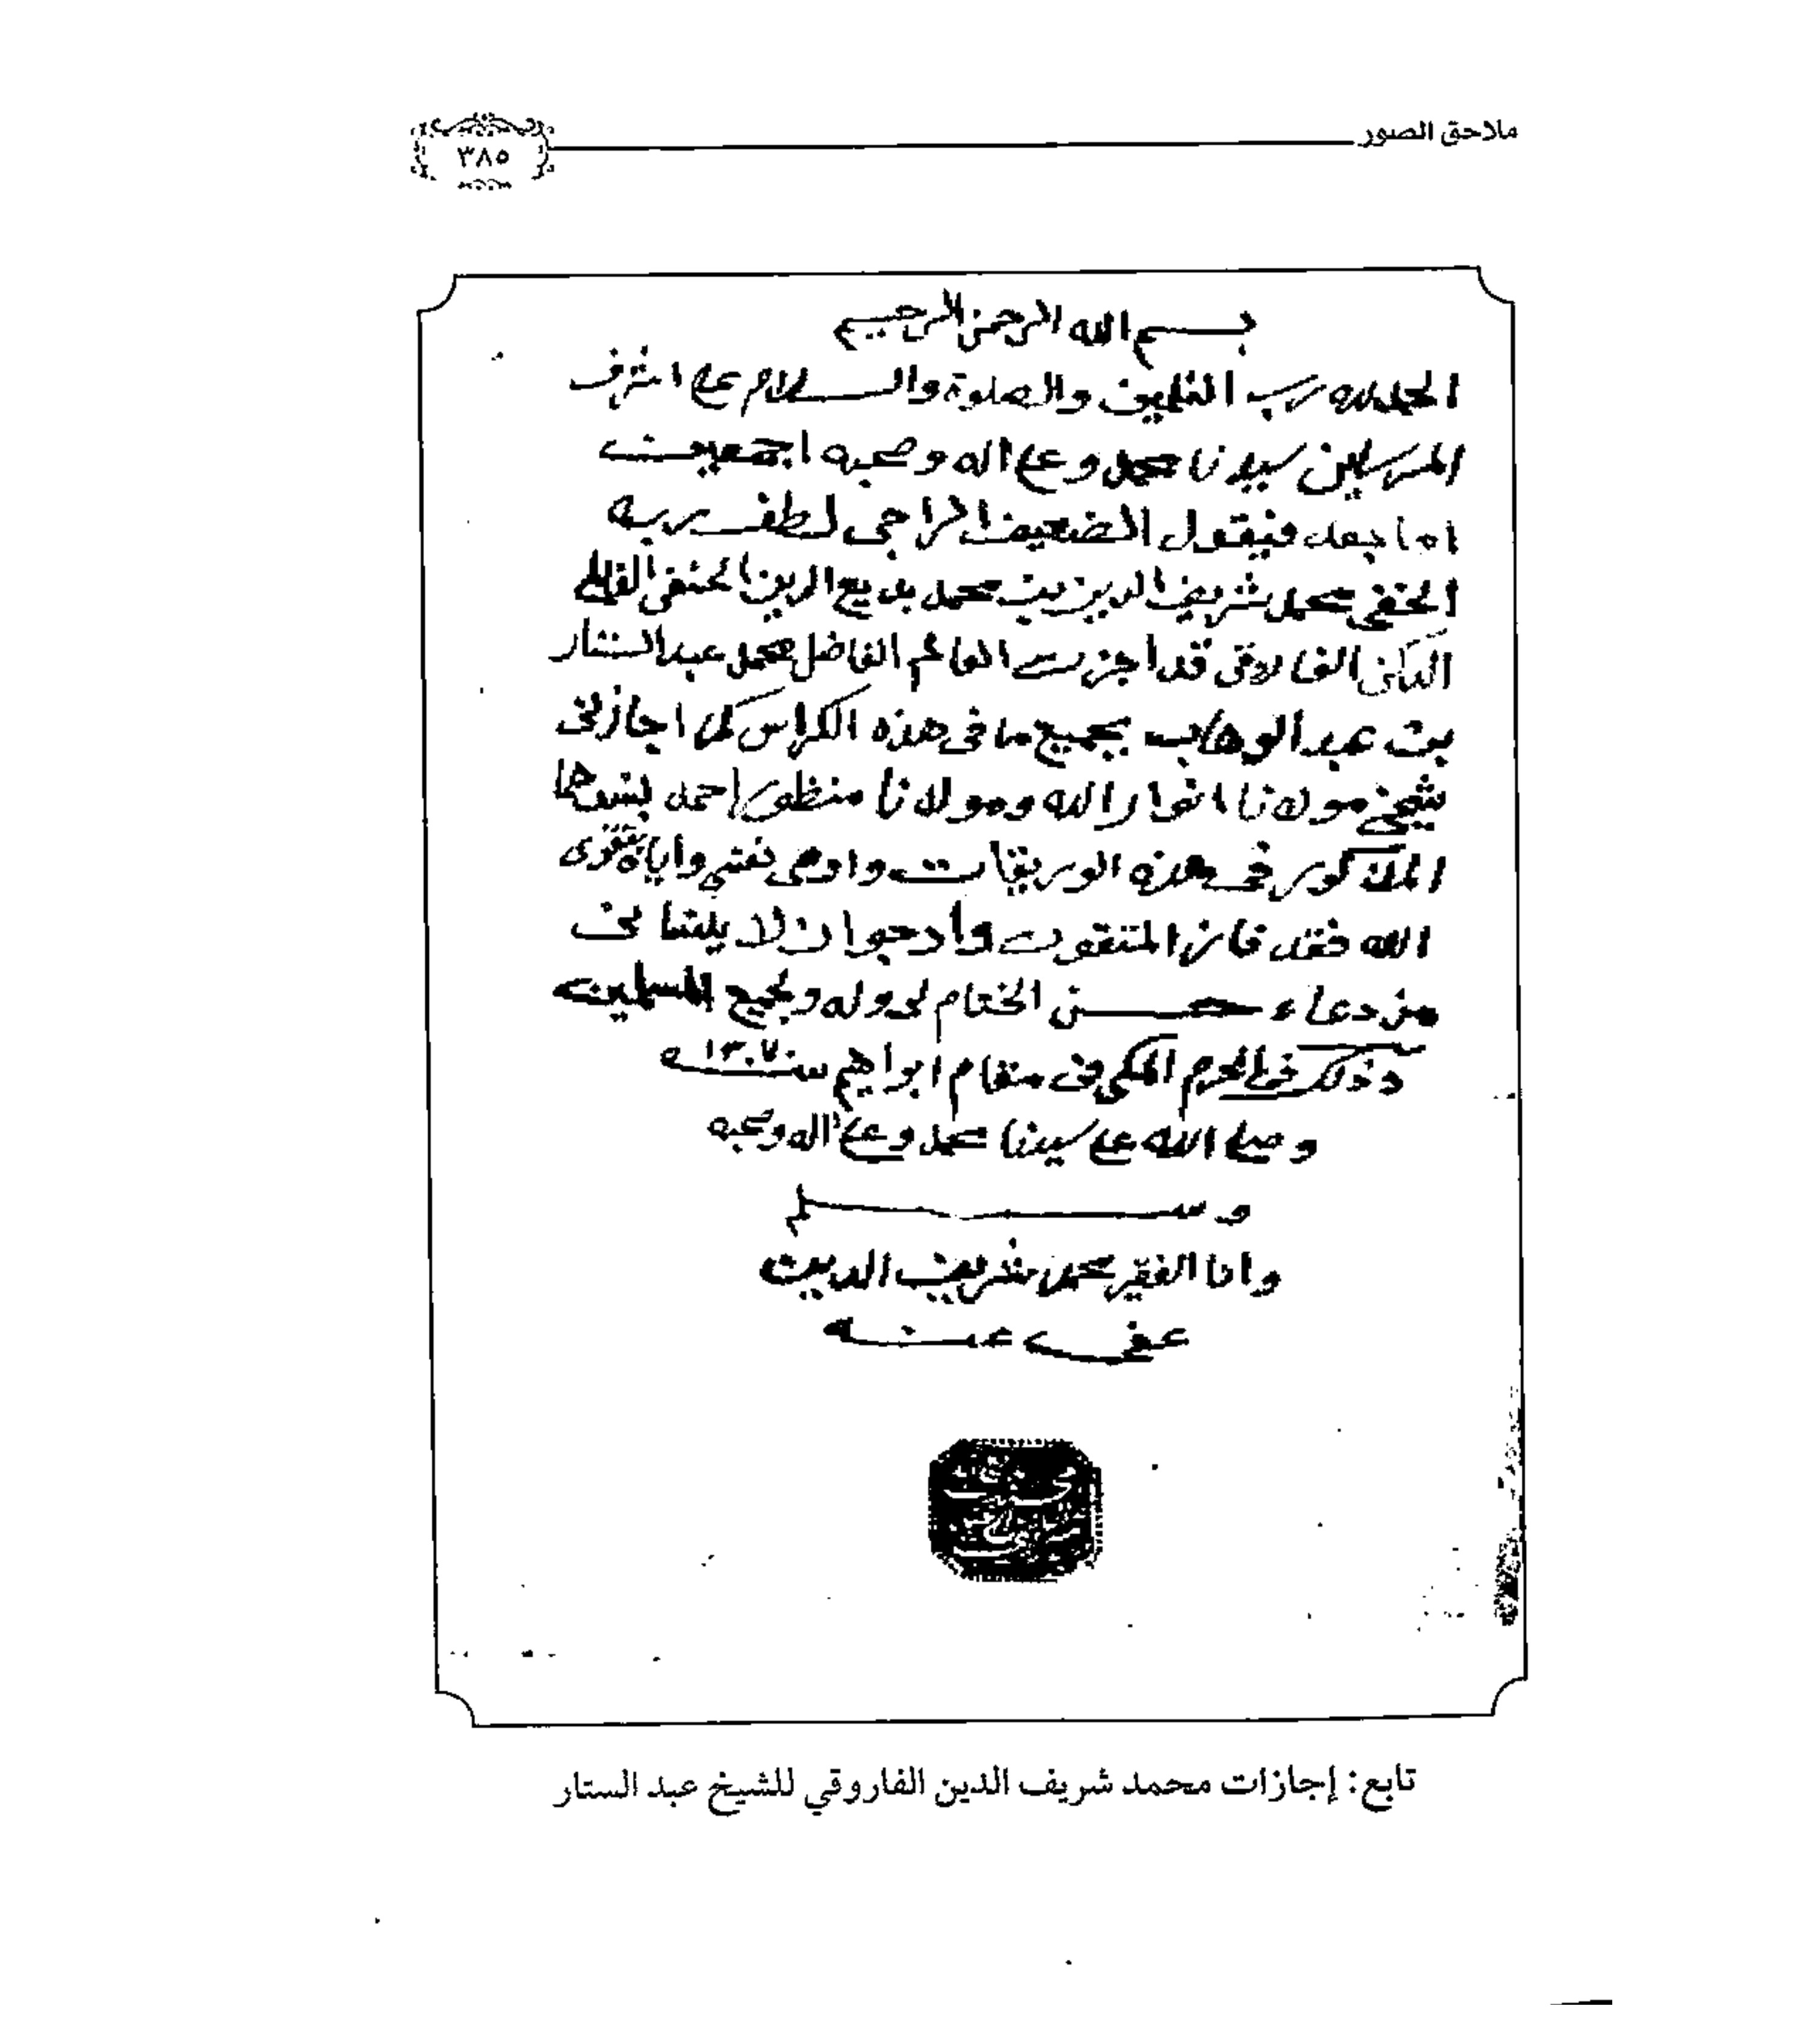 ملاحق الصور
٣٨٥
بسم الله الرحمن الرحيم
الحمد لله رب العلمين والصلوة والسلام على اشرف
المرسلين سيدنا محمد وعلى اله وصحبه اجمعين
اما بعد فيقول الضعيف الراجى لطف ربه
الخفي محمد شريف الدين بن محمد بديع الدين الحنفى
الدكنى الفاروقى قد اجزت العالم الفاضل محمد عبد الستار
بن عبد الوهاب بجميع ما فى هذه الكراس كما اجازنى
شيخى مولانا انوار الله ومولانا منظور احمد بسندهما
المذكور فى هذه الوريقات واوصى نفسى واياه بتقوى
الله فقد فاز المتقون وارجوا ان لا ينسانى
من دعاء حسن الختام لى وله ولجميع المسلمين
وذلك فى الحرم المكى فى مقام ابراهيم سنة ١٣٠٧
وصلى الله على سيدنا محمد وعلى اله وصحبه
وسلم
وانا الفقير محمد شريف الدين
عفى عنه
تابع: إجازات محمد شريف الدين الفاروقي للشيخ عبد الستار